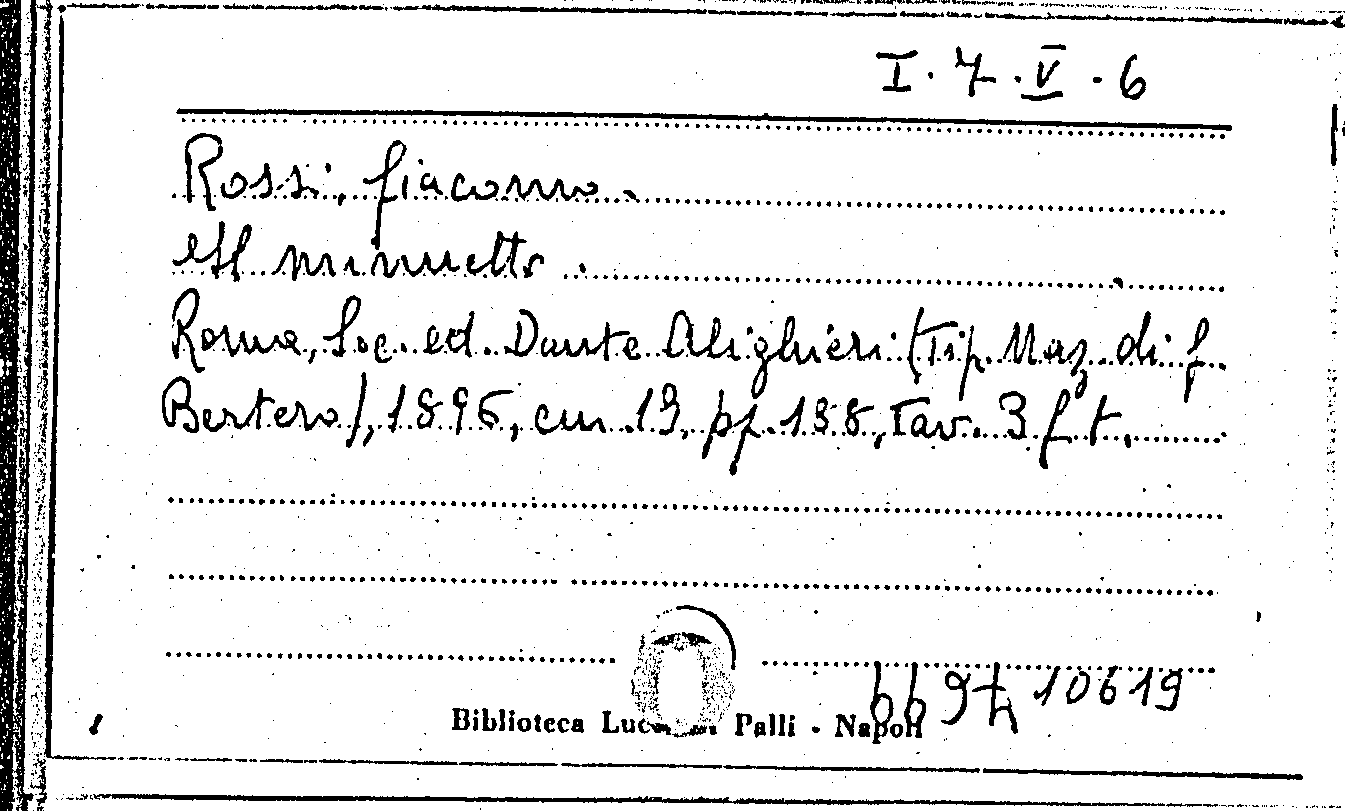 I. 7. V. 6
Rossi, Giacomo.
Il minuetto.
Roma, Soc. ed. Dante Alighieri (Tip. Naz. di G.
Bertero), 1896, cm. 19, pp. 138, tav. 3 f. t.
10619
Biblioteca Palli - Napoli